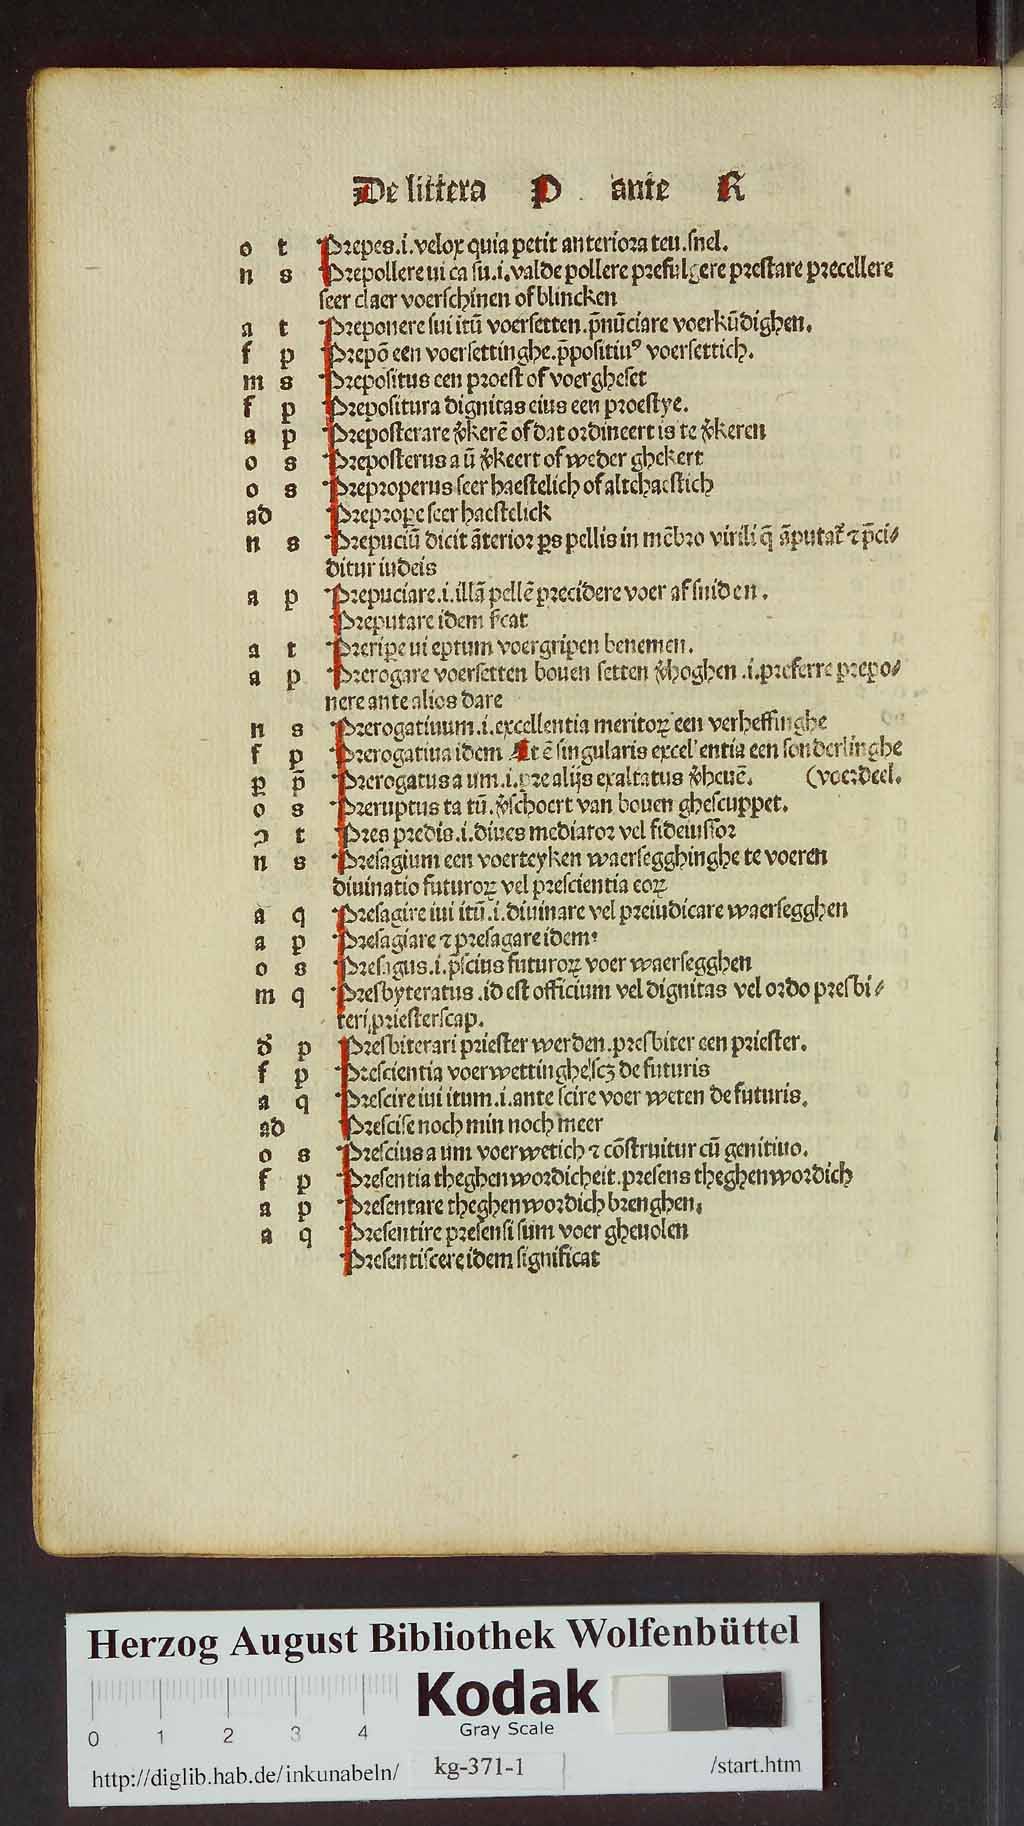 De littera P ante R
o t Prepes.i.velox quia petit anteriora teu.snel.
n s Prepollere ui ca su.i.valde pollere prefulgere prestare precellere
seer claer voerschinen of blincken
a t Preponere sui itū voersetten.p̄nūciare voerkūdighen.
f p Prepō een voersettinghe.p̄positiuꝰ voersettich.
m s Prepositus een proest of voergheset
f p Prepositura dignitas eius een proestye.
a p Preposterare v̓kerē of dat ordineert is te v̓keren
o s Preposterus a ū v̓keert of weder ghekert
o s Preproperus seer haestelich of altehaestich
ad Preprope seer haestelick
n s Prepuciū dicit āterior ꝑs pellis in mēbro virili q̄ āputat᷑ ⁊ p̄ci⸗
ditur iudeis
a p Prepuciare.i.illā pellē precidere voer af sniden.
Preputare idem ſcat
a t Preripe ui eptum voergripen benemen.
a p Prerogare voersetten bouen setten v̓hoghen.i.preferre prepo⸗
nere ante alios dare
n s Prerogatiuum.i.excellentia meritoꝝ een verheffinghe
f p Prerogatiua idem At ē singularis excel'entia een sonderlinghe
ꝑ p̄ Prerogatus a um.i.pre alijs exaltatus v̓heuē. (voerdeel.
o s Preruptus ta tū.v̓schoert van bouen ghescuppet.
ꝯ t Pres predis.i.diues mediator vel fideiussor
n s Presagium een voerteyken waersegghinghe te voeren
diuinatio futuroꝝ vel prescientia eoꝝ
a q Presagire iui itū.i.diuinare vel preiudicare waersegghen
a p Presagiare ⁊ presagare idem
o s Presagus.i.p̄scius futuroꝝ voer waersegghen
m q Presbyteratus.id est officium vel dignitas vel ordo presbi⸗
teri priesterscap.
d̓ p Presbiterari priester werden.presbiter een priester.
f p Prescientia voerwettinghe scꝫ de futuris
a q Prescire iui itum.i.ante scire voer weten de futuris.
ad Prescise noch min noch meer
o s Prescius a um voerwetich ⁊ cōstruitur cū genitiuo.
f p Presentia theghenwordicheit.presens theghenwordich
a p Presentare theghenwordich brenghen.
a q Presentire presensi sum voer gheuolen
Presentiscere idem significat
Herzog August Bibliothek Wolfenbüttel
Kodak
Gray Scale
0 1 2 3 4
http://diglib.hab.de/inkunabeln/ kg-371-1 /start.htm